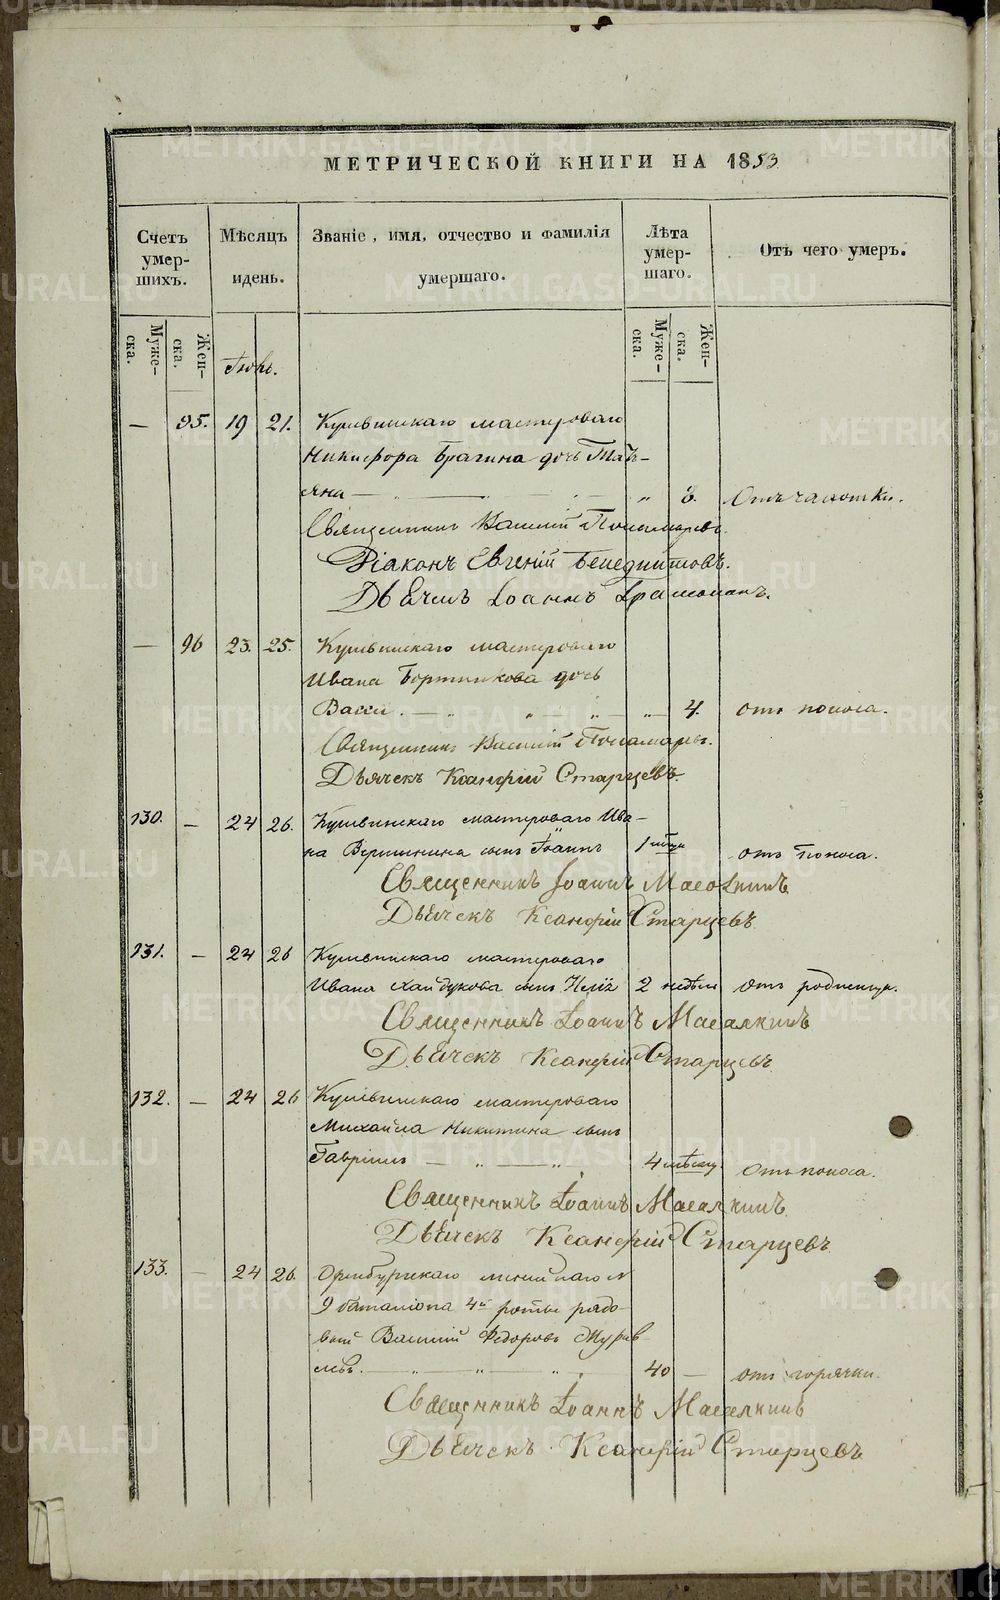 МЕТРИЧЕСКОЙ КНИГИ НА 1853
Счетъ умер-шихъ. Мѣсяцъ и день. Званіе, имя, отчество и фамилія умершаго. Лѣта умер-шаго. Отъ чего умеръ.
Муже-ска. Жен-ска. Муже-ска. Жен-ска.
— 95. 19 21. Кушвинскаго мастероваго
Никифора Брагина дочь Тать-
яна — " — " — " 3. Отъ чахотки.
Священникъ Василій Пономаревъ.
Діаконъ Евгеній Бенедиктовъ.
Дьячекъ Іоаннъ
— 96 23. 25. Кушвинскаго мастероваго
Ивана Бортникова дочь
Васса. — " " — " — " — 4. отъ поноса.
Священникъ Василій Пономаревъ.
Дьячекъ Ксанфій Старцевъ.
130. — 24 26. Кушвинскаго мастероваго Ива-
на Вершинина сынъ Іоаннъ 1 отъ поноса.
Священникъ Іоаннъ Масалкинъ
Дьячекъ Ксанфій Старцевъ.
131. — 24 26 Кушвинскаго мастероваго
Ивана Хайдукова сынъ 2 недѣли отъ родимца.
Священникъ Іоаннъ Масалкинъ
Дьячекъ Ксанфій Старцевъ.
132. — 24 26 Кушвинскаго мастероваго
Михайла Никитина сынъ
Гавріилъ — " — " 4 мѣсяц. Отъ поноса.
Священникъ Іоаннъ Масалкинъ
Дьячекъ Ксанфій Старцевъ
133. — 24 26. Оренбургскаго линейнаго №
9 баталіона 4й роты рядо-
вой Василій Федоровъ Журав-
левъ. — " — " — " 40 — отъ горячки.
Священникъ Іоаннъ Масалкинъ
Дьячекъ Ксанфій Старцевъ
METRIKI.GASO-URAL.RU